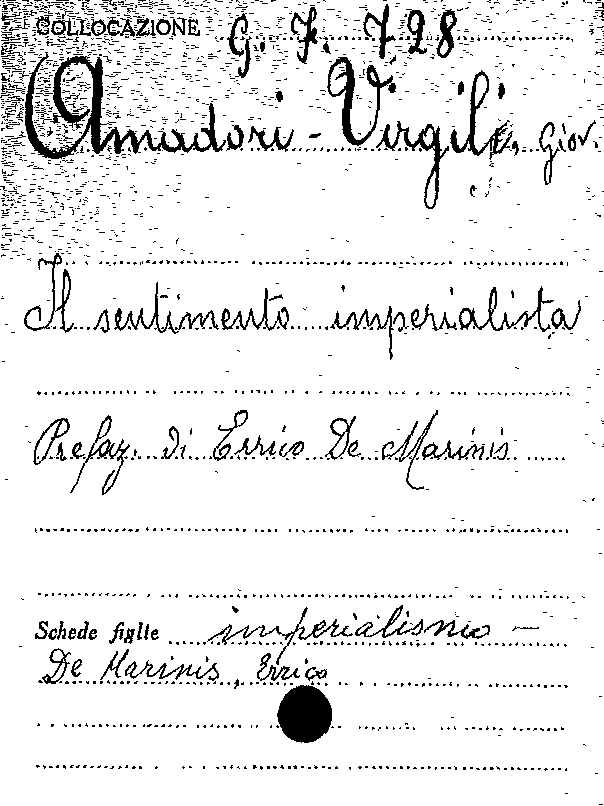 COLLOCAZIONE G. F. 728
Amadori-Virgili, Giov.
Il sentimento imperialista
Prefaz. di Errico De Marinis
Schede figlie imperialismo -
De Marinis, Errico